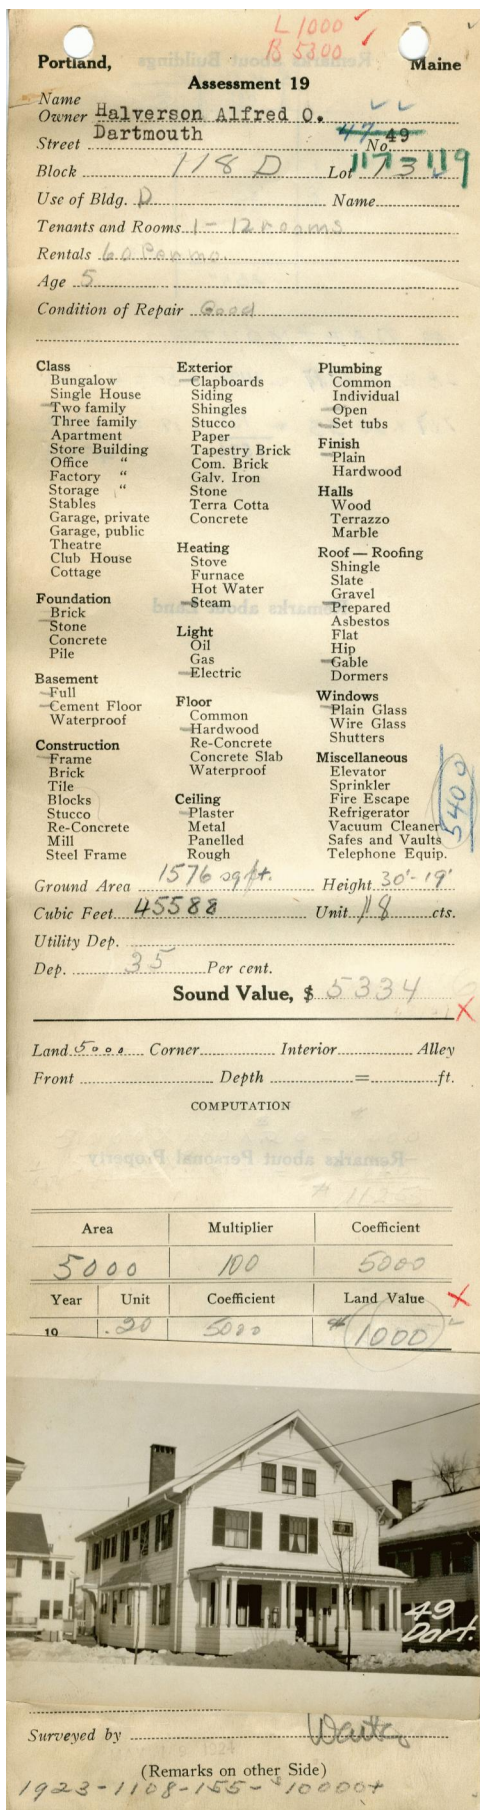 L 1000 ✓
B 5300 ✓
Portland, Maine
Assessment 19
Name
Owner Halverson Alfred O.
Street Dartmouth No. 47-49
Block 118 D Lot 73 117-119
Use of Bldg. D Name
Tenants and Rooms 1 - 12 rooms
Rentals 60 Per mo.
Age 5
Condition of Repair Good
Class
Bungalow
Single House
Two family
Three family
Apartment
Store Building
Office "
Factory "
Storage "
Stables
Garage, private
Garage, public
Theatre
Club House
Cottage
Foundation
Brick
Stone
Concrete
Pile
Basement
Full
Cement Floor
Waterproof
Construction
Frame
Brick
Tile
Blocks
Stucco
Re-Concrete
Mill
Steel Frame
Exterior
Clapboards
Siding
Shingles
Stucco
Paper
Tapestry Brick
Com. Brick
Galv. Iron
Stone
Terra Cotta
Concrete
Heating
Stove
Furnace
Hot Water
Steam
Light
Oil
Gas
Electric
Floor
Common
Hardwood
Re-Concrete
Concrete Slab
Waterproof
Ceiling
Plaster
Metal
Panelled
Rough
Plumbing
Common
Individual
Open
Set tubs
Finish
Plain
Hardwood
Halls
Wood
Terrazzo
Marble
Roof — Roofing
Shingle
Slate
Gravel
Prepared
Asbestos
Flat
Hip
Gable
Dormers
Windows
Plain Glass
Wire Glass
Shutters
Miscellaneous
Elevator
Sprinkler
Fire Escape
Refrigerator
Vacuum Cleaner
Safes and Vaults
Telephone Equip.
5400
Ground Area 1576 sq ft. Height 30'-19'
Cubic Feet 45588 Unit 18 cts.
Utility Dep.
Dep. 35 Per cent.
Sound Value, $ 5334
Land 5000 Corner Interior Alley
Front Depth = ft.
COMPUTATION
Area Multiplier Coefficient
5000 100 5000
Year Unit Coefficient Land Value
19 .20 5000 $1000
49
Dart.
Surveyed by
(Remarks on other Side)
1923-1108-155-$10000+